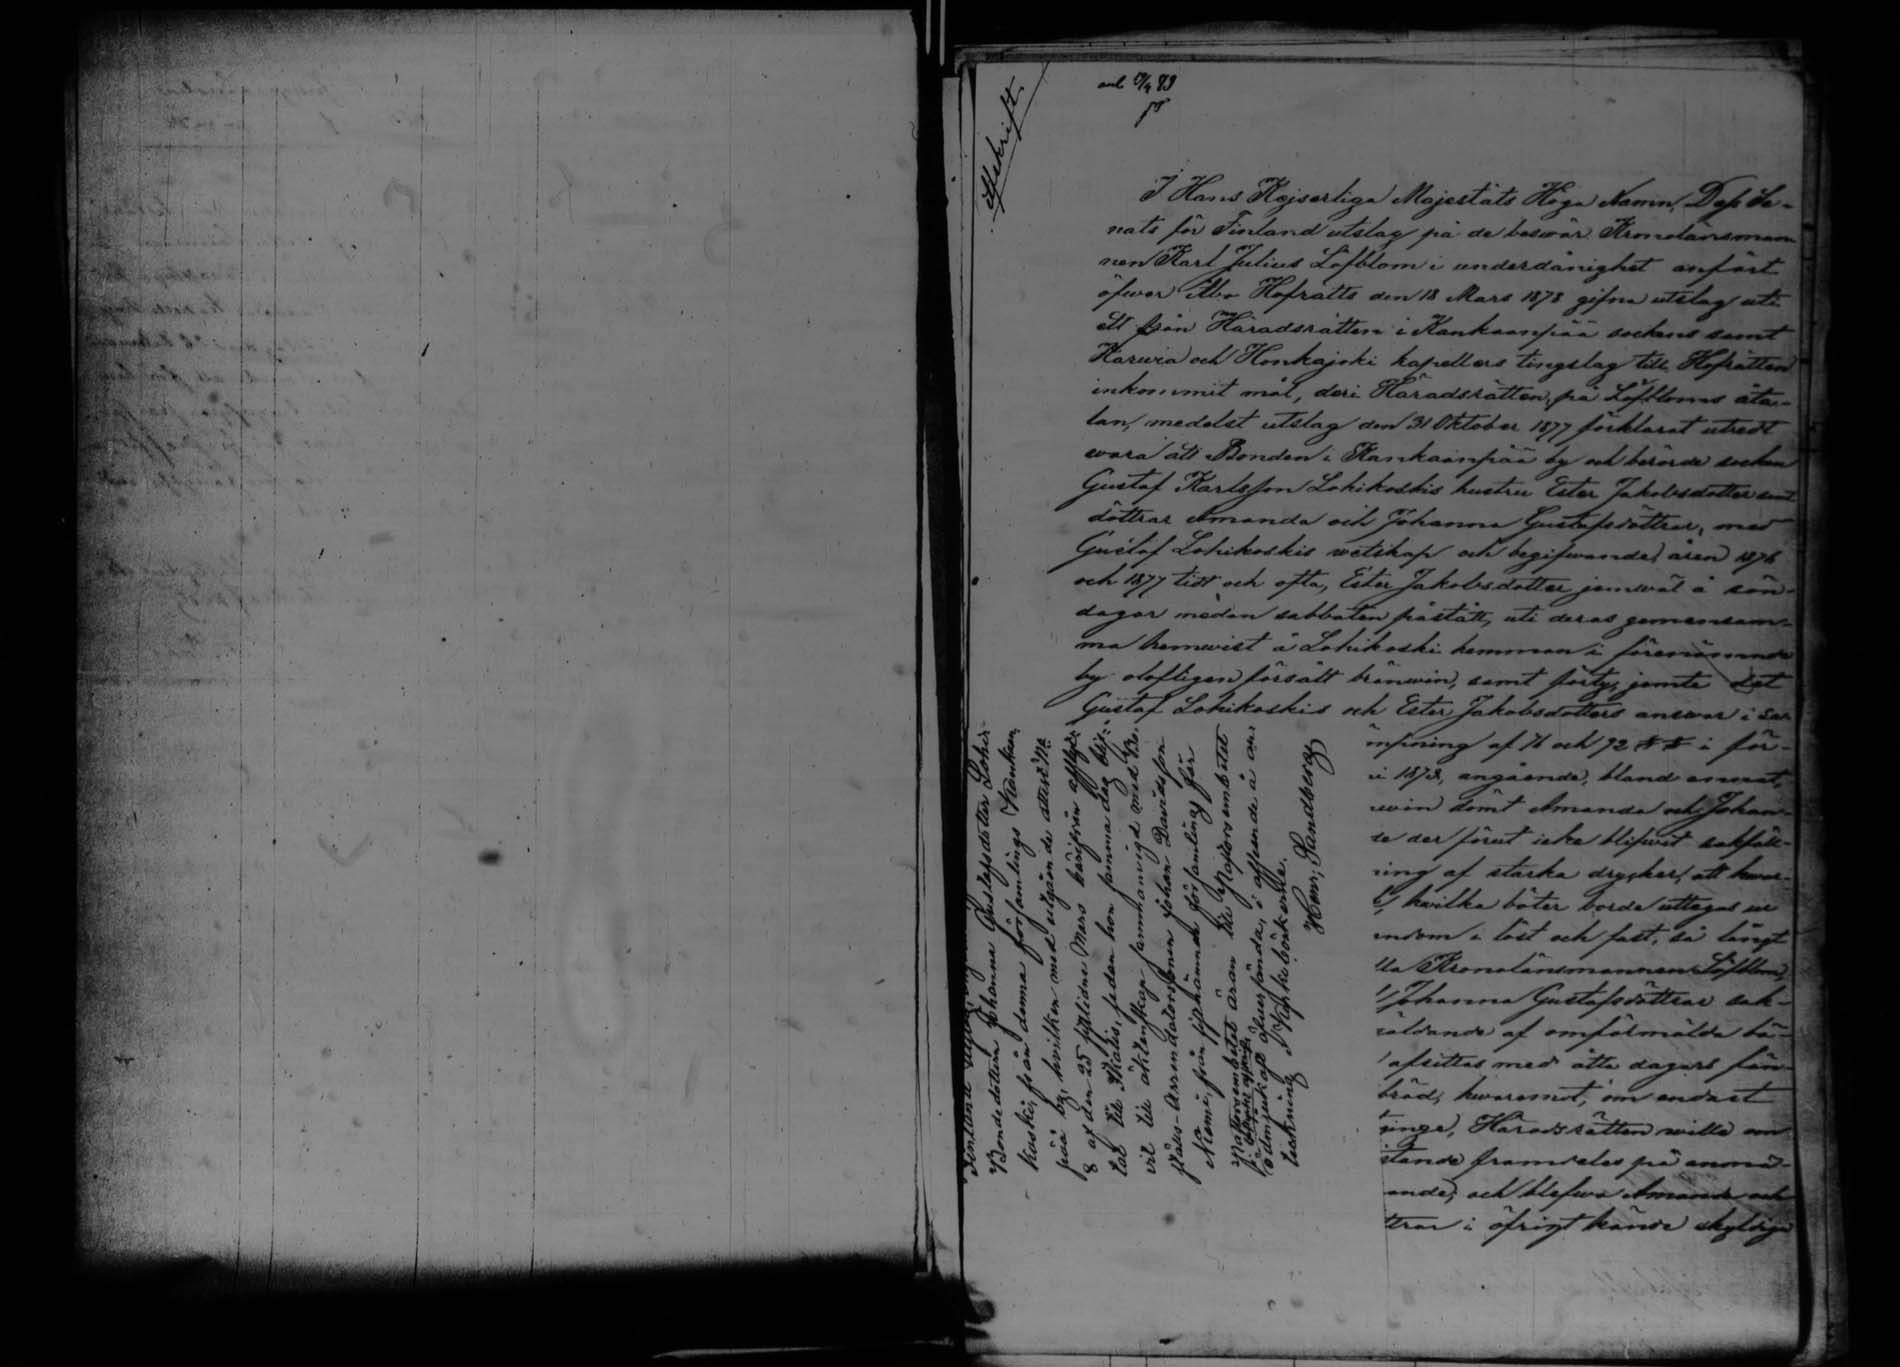 Afskrift.
ank 5/4 83
I Hans Kejserliga Majestäts Höga Namn, Dess Se-
nats för Finland utslag på de besvär Kronolänsman
nen Karl Julius Löfblom i underdånighet anfört
öfwer Åbo Hofrätts den 18 Mars 1878 gifna utslag uti
ett från Häradsrätten i Kankaanpää sockens samt
Karwia och Honkajoki kapellers tingslag till Hofrätten
inkommit mål, deri Häradsrätten, på Löfbloms åta-
lan, medelst utslag den 31 Oktober 1877 förklarat utredt
wara att Bonden i Kankaanpää by och berörde socken
Gustaf Karlsson Lohikoskis hustru Ester Jakobsdotter samt
döttrar Amanda och Johanna Gustafsdöttrar, med
Gustaf Lohikoskis wetskap och begifwande, åren 1876
och 1877 tidt och ofta, Ester Jakobsdotter jemwäl å sön-
dagar medan sabbaten påstått, uti deras gemensam-
ma hemwist å Lohikoski hemman i förenämnde
by olofligen försålt bränwin, samt förty, jemte det
Gustaf Lohikoskis och Ester Jakobsdotters answar i
ämpning af 71 och 72 §§ i för-
i 1873, angående, bland annat,
win dömt Amanda och Johan-
de der förut icke blifwit sakfäll-
ning af starka drycker, att hwar-
hwilka böter borde uttagas ur
endom i löst och fast, så långt
lla Kronolänsmannen Löfblom,
Johanna Gustafsdöttrar sak-
räldande af omförmälda bö-
afsittas med åtta dagars fän-
bröd, hwaremot, om endast
ringe, Häradsrätten wille om
stande framdeles på anmä-
ande, och blefwo Amanda och
ttrar i öfrigt kände skyldiga
Finland
Bondedottern Johanna Gustafsdotter Lohi-
koski, från denna församlings Kankaan
pää by, hvilken med utgående attest No
8 af den 25 sistlidne Mars härifrån afflyt-
tat till Ikalis, sedan hon samma dag bli-
vit till äktenskap sammanvigd med Be-
ställs-Arrendatorssonen Johan Davidsson
Niemi, från sistnämnda församling får
Pastorsembetet äran till Majorsembetet
i Ikalis
ödmjukast öfversända, i afseende å an-
teckning i Kyrkoböckerne.
Henr. Sandberg